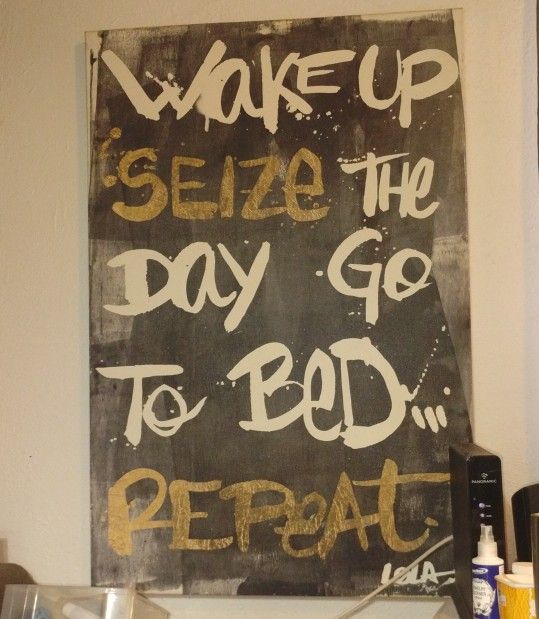 WAKE UP
SEIZE THE
DAY GO
TO BED...
REPEAT.
LOLA
PANORAMIC